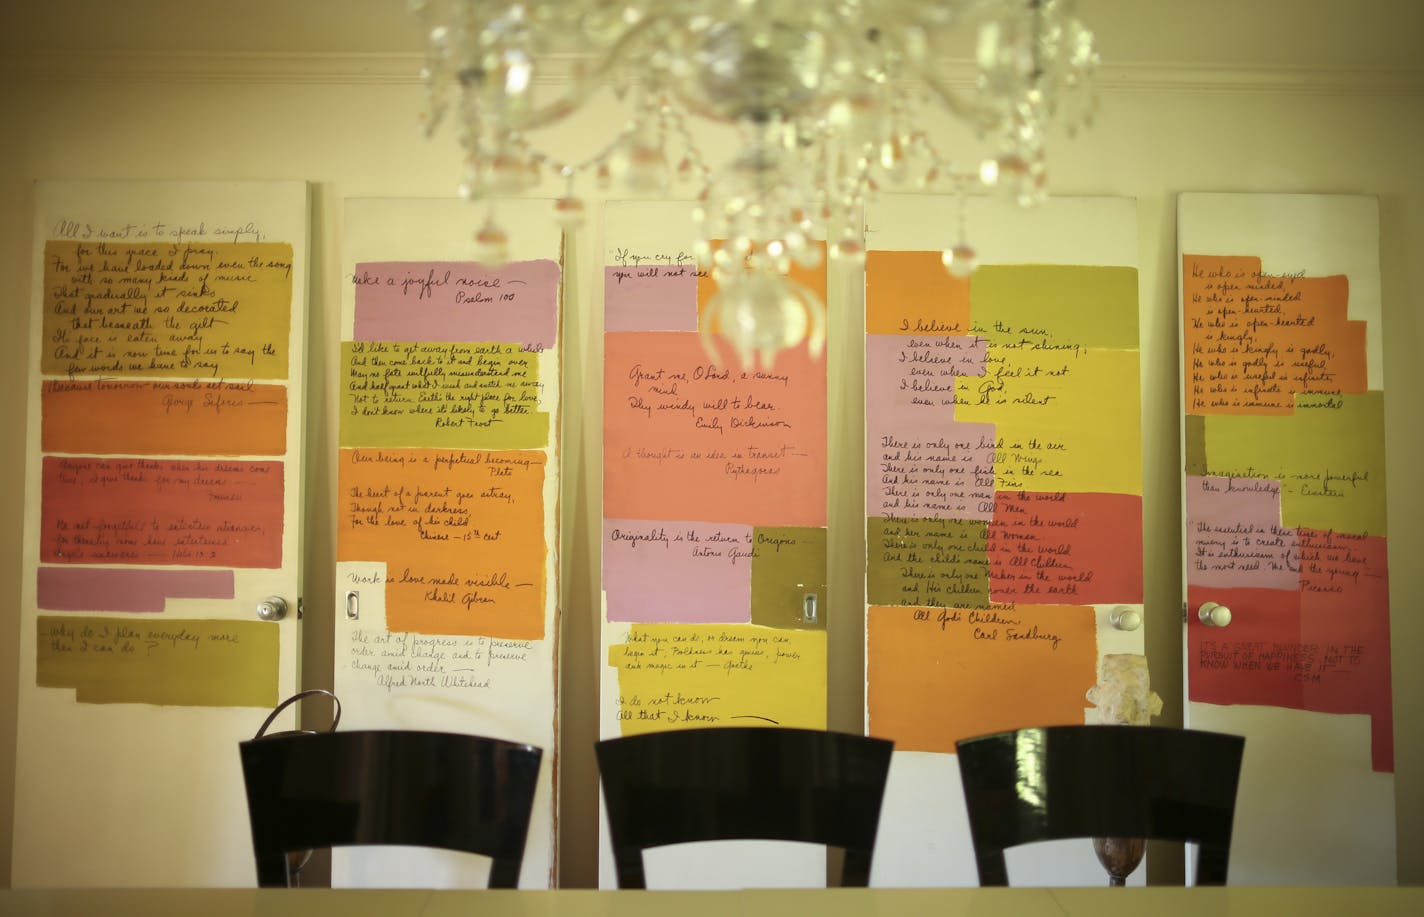 All I want is to speak simply,
for this grace I pray.
For we have loaded down even the song
with so many kinds of music
That gradually it sinks
And our art we so decorated
that beneath the gilt
Its face is eaten away
And it is now time for us to say the
few words we have to say
Because tomorrow our souls set sail.
George Seferis
Anyone can give thanks when his dreams come
true, I give thanks for my dreams
Be not forgetful to entertain strangers,
for thereby some have entertained
Angels unawares — Heb 13:2
- why do I plan everyday more
than I can do ?
Make a joyful noise —
Psalm 100
I'd like to get away from earth a while
And then come back to it and begin over
May no fate willfully misunderstand me
And half grant what I wish and snatch me away
Not to return. Earth's the right place for love,
I don't know where it's likely to go better.
Robert Frost
Our being is a perpetual becoming —
Plato
The heart of a parent goes astray,
Though not in darkness,
For the love of his child
Chinese — 15th cent
Work is love made visible —
Khalil Gibran
The art of progress is to preserve
order amid change and to preserve
change amid order. —
Alfred North Whitehead
"If you cry for
you will not see
Grant me, O Lord, a sunny
mind
Thy windy will to bear.
Emily Dickinson
A thought is an idea in transit —
Pythagoras
Originality is the return to Origins —
Antonio Gaudi
What you can do, or dream you can,
begin it; Boldness has genius, power
and magic in it — Goethe
I do not know
All that I know
I believe in the sun,
even when it is not shining,
I believe in love,
even when I feel it not
I believe in God,
even when he is silent
There is only one bird in the air
and his name is All Wings
There is only one fish in the sea
And his name is All Fins
There is only one man in the world
and his name is All Men
There is only one woman in the world
and her name is All Women.
There is only one child in the world
And the child's name is All Children
There is only one Maker in the world
and His Children cover the earth
and they are named
All God's Children
Carl Sandburg
He who is open-eyed
is open minded,
He who is open-minded
is open-hearted,
He who is open-hearted
is kingly,
He who is kingly is godly,
He who is godly is useful,
He who is useful is infinite,
He who is infinite is immune
He who is immune is immortal
"Imagination is more powerful
than knowledge" - Einstein
"The essential in these times of moral
misery is to create enthusiasm..
It is enthusiasm of which we have
the most need. We and the young —
Picasso
IT'S A GREAT HINDER IN THE
PURSUIT OF HAPPINESS NOT TO
KNOW WHEN WE HAVE IT
CSM